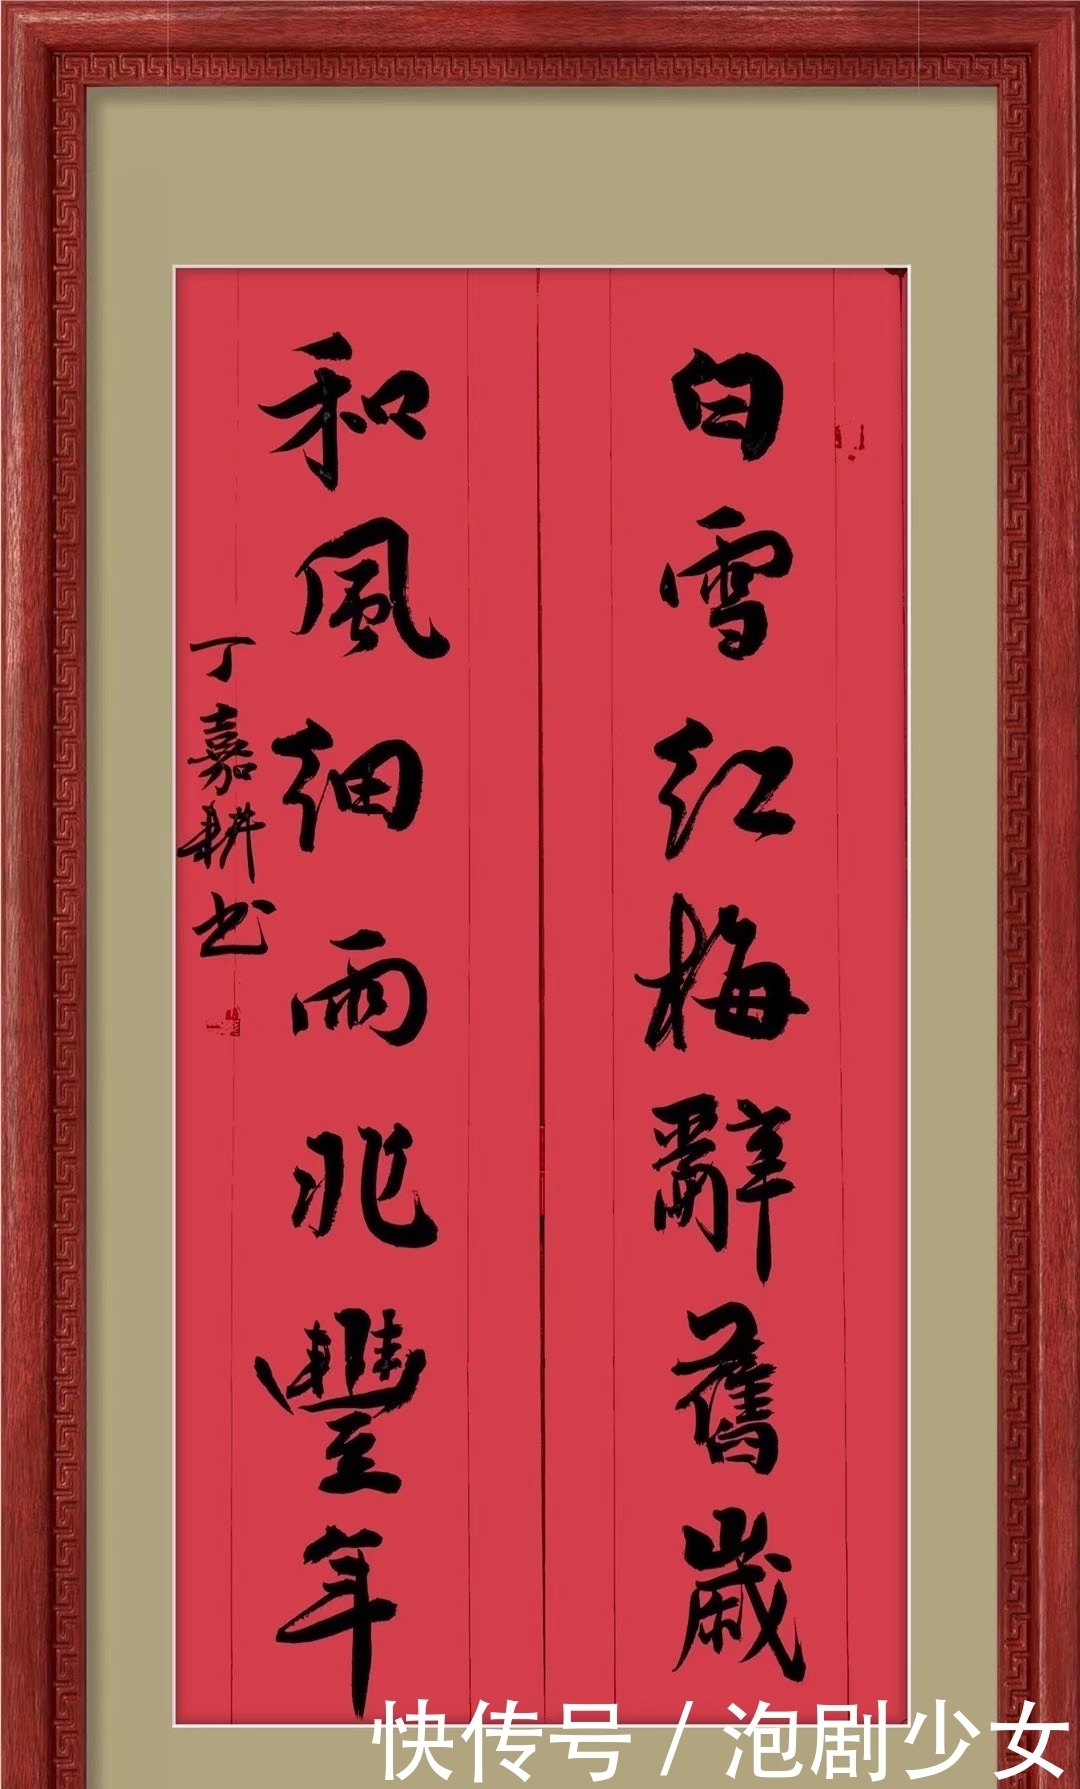 白雪红梅辭舊歲
和風细雨兆豐年
丁嘉耕书
快传号/泡剧少女